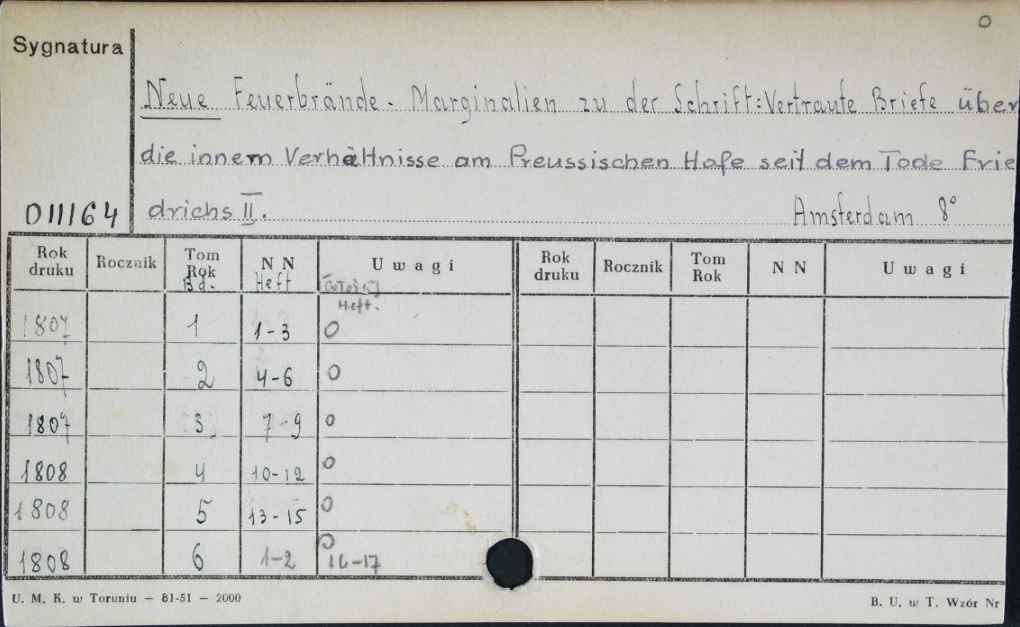 O
Sygnatura
Neue Feuerbrände. Marginalien zu der Schrift: Vertraute Briefe über
die innern Verhältnisse am Preussischen Hofe seit dem Tode Frie
O III 64 drichs II. Amsterdam 8°
Rok druku Rocznik Tom Rok Bd. N N Heft U w a g i Rok druku Rocznik Tom Rok N N U w a g i
Heft.
1807 1 1-3 O
1807 2 4-6 O
1807 3 7-9 O
1808 4 10-12 O
1808 5 13-15 O
1808 6 1-2 O 16-17
U. M. K. w Toruniu — 81-51 — 2000 B. U. w T. Wzór Nr